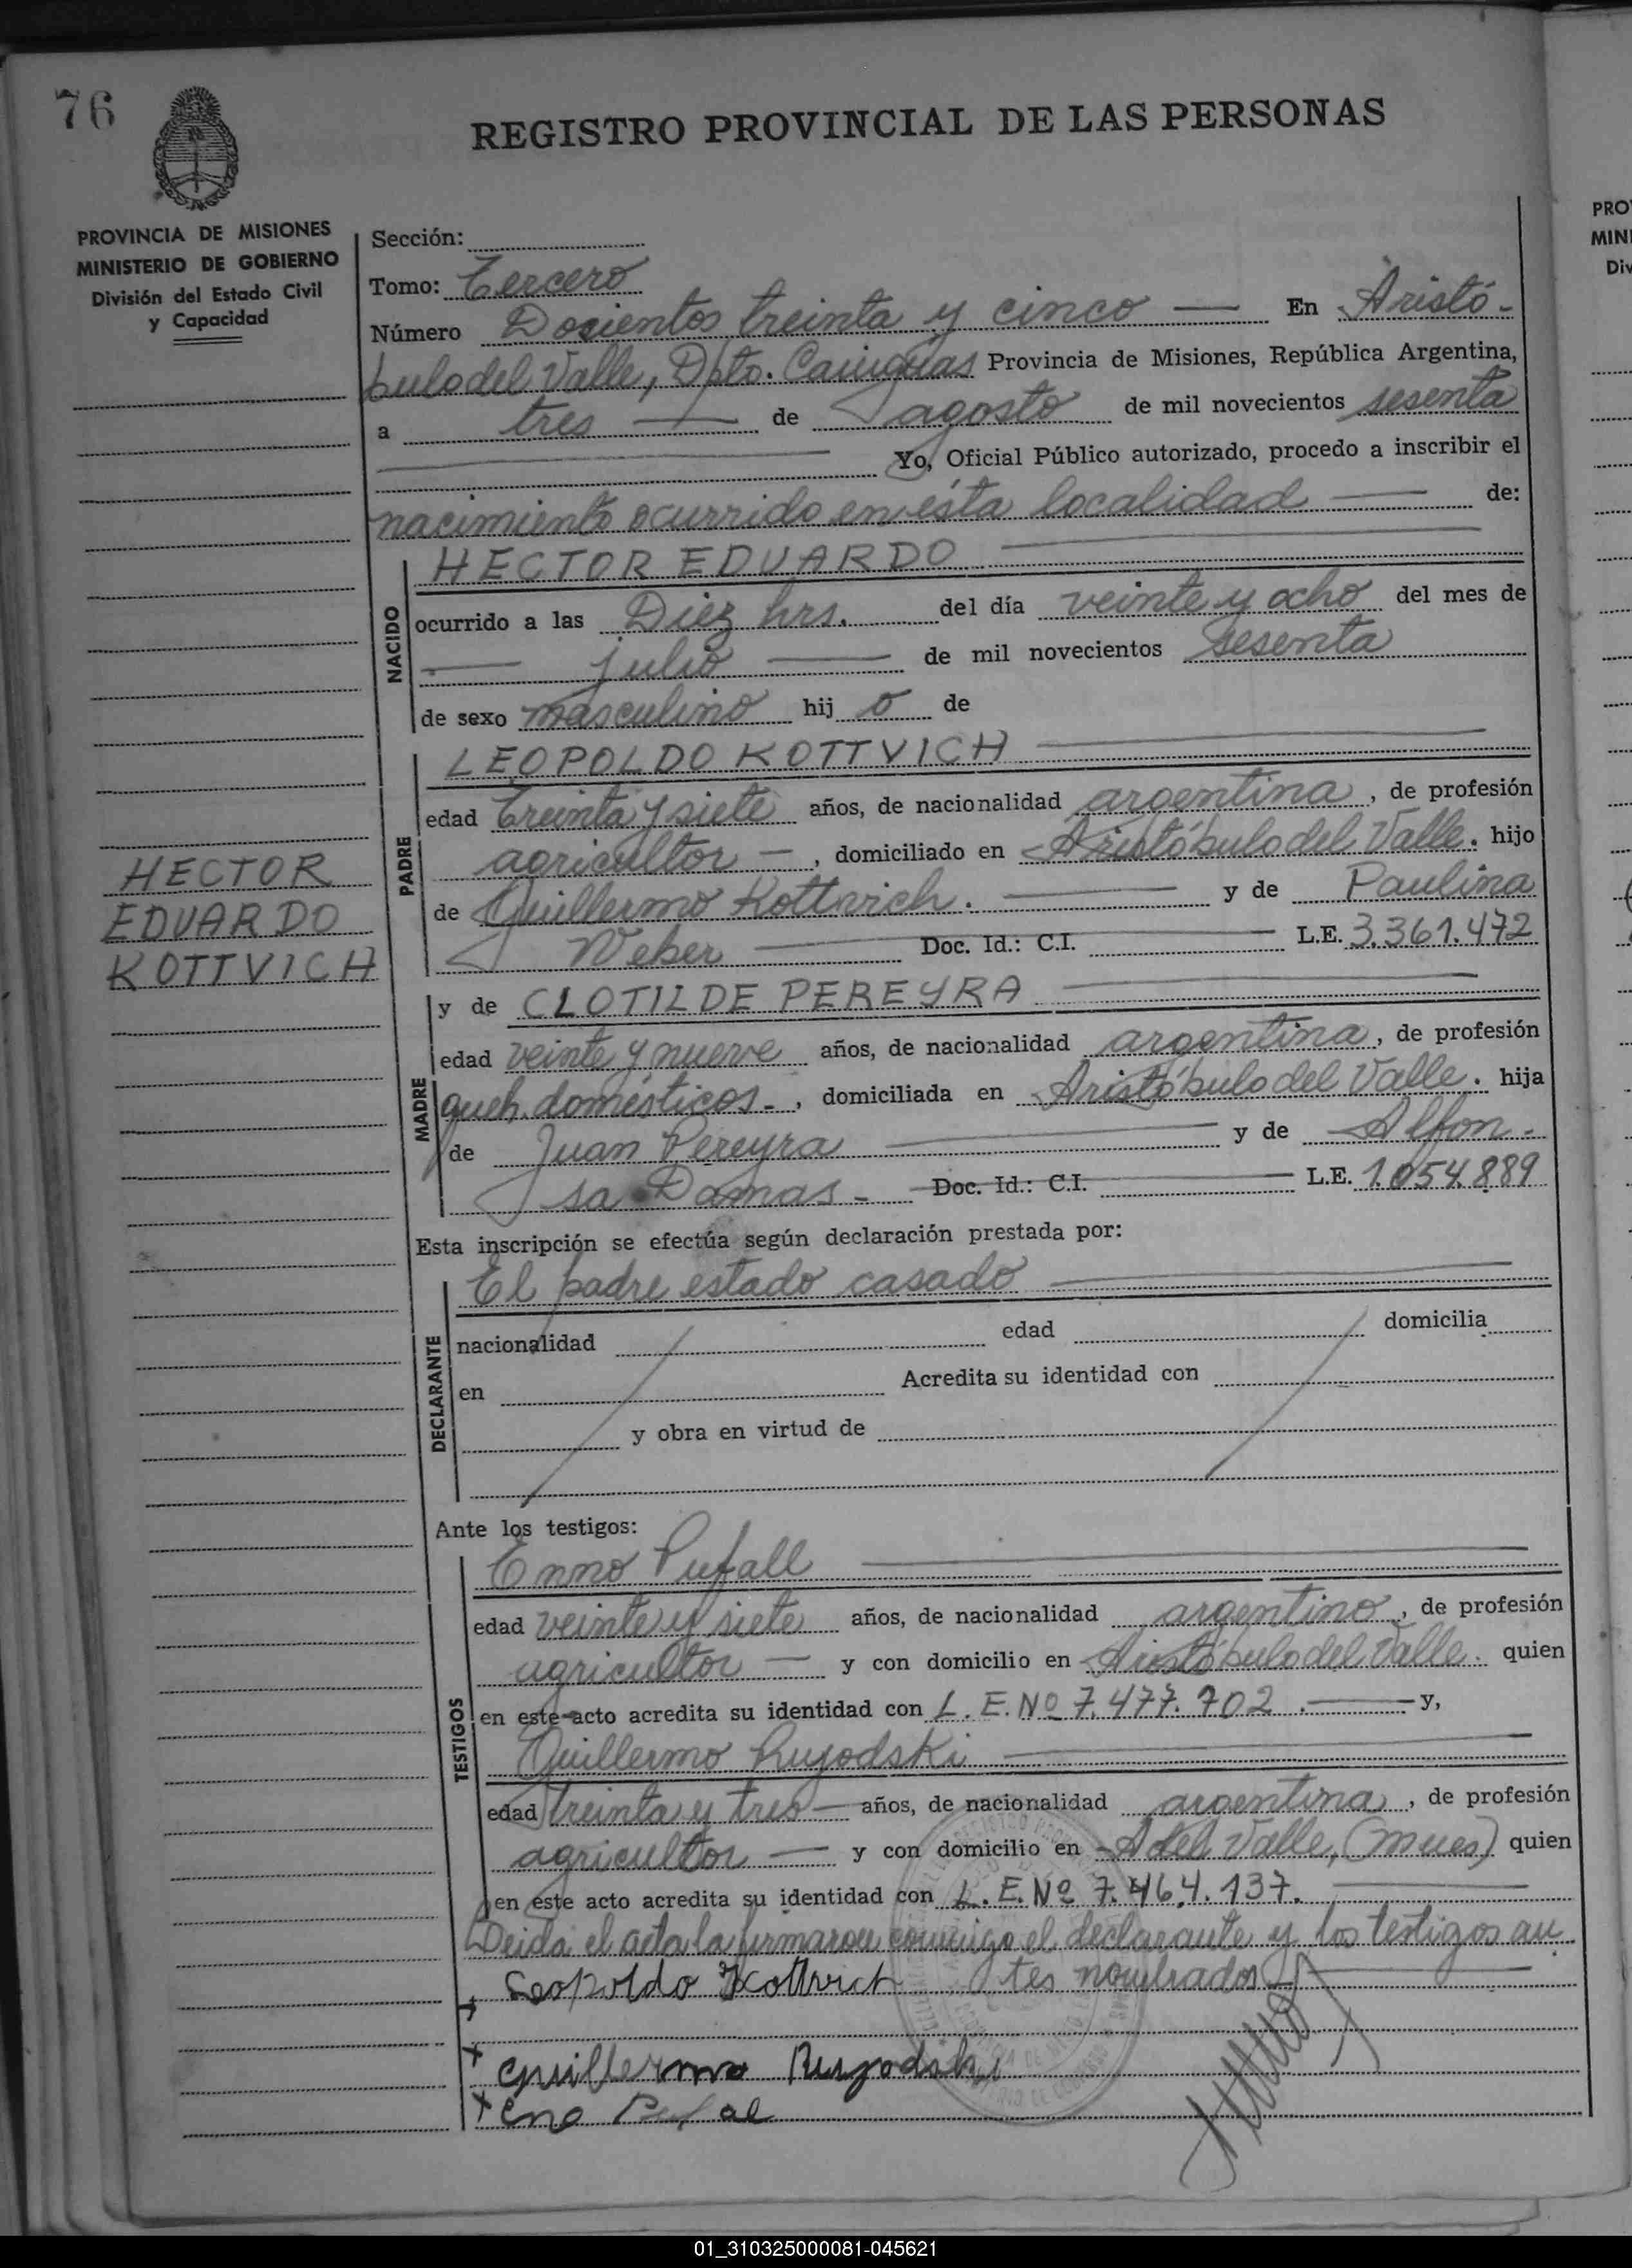 76
REGISTRO PROVINCIAL DE LAS PERSONAS
PROVINCIA DE MISIONES
MINISTERIO DE GOBIERNO
División del Estado Civil
y Capacidad
Sección:
Tomo: Tercero
Número Docientos treinta y cinco — En Aristó-
bulo del Valle, Dpto. Cainguas Provincia de Misiones, República Argentina,
a tres — de agosto de mil novecientos sesenta
Yo, Oficial Público autorizado, procedo a inscribir el
nacimiento ocurrido en ésta localidad — de:
NACIDO
HECTOR EDUARDO
ocurrido a las Diez hrs. del día veinte y ocho del mes de
— julio — de mil novecientos sesenta
de sexo masculino hij o de
PADRE
LEOPOLDO KOTTVICH
edad treinta y siete años, de nacionalidad argentina, de profesión
agricultor —, domiciliado en Aristóbulo del Valle. hijo
de Guillermo Kottvich. — y de Paulina
Weber — Doc. Id.: C.I. L.E. 3.361.472
HECTOR
EDUARDO
KOTTVICH
MADRE
y de CLOTILDE PEREYRA
edad veinte y nueve años, de nacionalidad argentina, de profesión
queh. domésticos-, domiciliada en Aristóbulo del Valle. hija
de Juan Pereyra — y de Alfon-
sa Damas- Doc. Id.: C.I. L.E. 1.054.889
Esta inscripción se efectúa según declaración prestada por:
DECLARANTE
El padre estado casado
nacionalidad edad domicilia
en Acredita su identidad con
y obra en virtud de
Ante los testigos:
TESTIGOS
Enno Pufall
edad veinte y siete años, de nacionalidad argentino, de profesión
agricultor — y con domicilio en Aristóbulo del Valle. quien
en este acto acredita su identidad con L.E. Nº 7.477.702. — y,
Guillermo Rujodski
edad treinta y tres — años, de nacionalidad argentina, de profesión
agricultor — y con domicilio en A del Valle, (Mnes) quien
en este acto acredita su identidad con L.E. Nº 7.464.137.
Leida el acta la firmaron conmigo el declarante y los testigos an
tes nombrados
Leopoldo Kottvich
x Guillermo Ruzodski
x Eno Pufal
PRO
MINI
Div
01_310325000081-045621